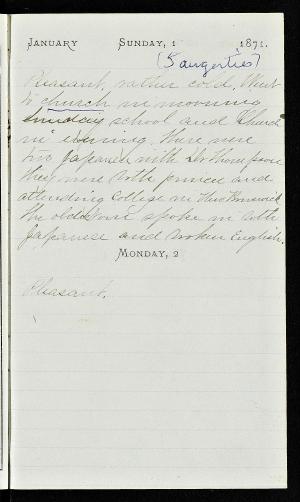 January Sunday, 1 1871.
(Saugerties)
Pleasant, rather cold. Went
to church in morning
Sunday school and Church
in evening. There were
two Japanese with Dr Thompson
they were both princes and
attending College in New Brunswick
The older one spoke in both
Japanese and broken English.
Monday, 2
Pleasant.